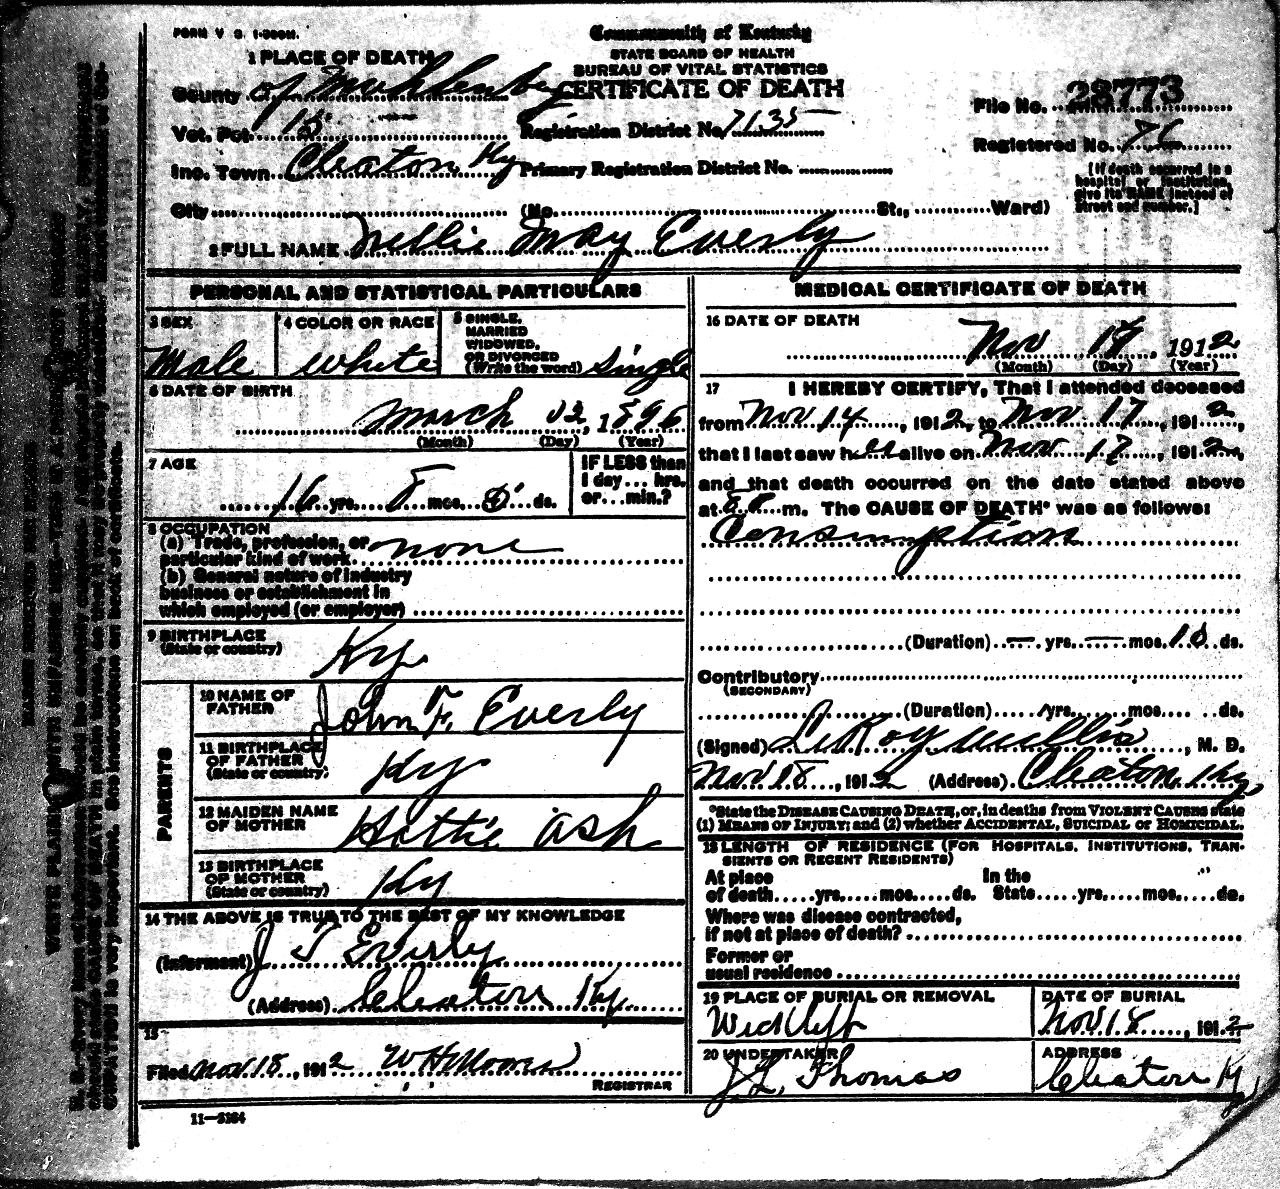 FORM V. S. 1-200M.
Commonwealth of Kentucky
STATE BOARD OF HEALTH
BUREAU OF VITAL STATISTICS
CERTIFICATE OF DEATH
1 PLACE OF DEATH
County of Muhlenberg
Vot. Pct. 15 Registration District No. 7135
Inc. Town Cleaton Ky Primary Registration District No.
City (No. St., Ward)
File No. 28773
Registered No.
[If death occurred in a
hospital or institution,
give its NAME instead of
street and number.]
2 FULL NAME Nellie May Everly
PERSONAL AND STATISTICAL PARTICULARS
3 SEX
Male
4 COLOR OR RACE
White
5 SINGLE,
MARRIED
WIDOWED,
OR DIVORCED
(Write the word) Single
6 DATE OF BIRTH
March 1896
(Month) (Day) (Year)
7 AGE
16 yrs. 8 mos. ds.
IF LESS than
1 day... hrs.
or... min.?
8 OCCUPATION
(a) Trade, profession, or
particular kind of work none
(b) General nature of industry
business or establishment in
which employed (or employer)
9 BIRTHPLACE
(State or country)
Ky.
PARENTS
10 NAME OF
FATHER
John F. Everly
11 BIRTHPLACE
OF FATHER
(State or country)
Ky
12 MAIDEN NAME
OF MOTHER
Hattie Ash
13 BIRTHPLACE
OF MOTHER
(State or country)
Ky
14 THE ABOVE IS TRUE TO THE BEST OF MY KNOWLEDGE
(Informant) J F Everly
(Address) Cleaton Ky.
15
Filed Nov. 18, 1912 W H Moore
REGISTRAR
11—3184
MEDICAL CERTIFICATE OF DEATH
16 DATE OF DEATH
Nov 1912
(Month) (Day) (Year)
17 I HEREBY CERTIFY, That I attended deceased
from Nov 14, 1912, to Nov 17, 1912,
that I last saw her alive on Nov 17, 1912,
and that death occurred on the date stated above
at m. The CAUSE OF DEATH* was as follows:
Consumption
(Duration) — yrs. — mos. 10 ds.
Contributory
(SECONDARY)
(Duration) yrs. mos. ds.
(Signed) LeRoy Willis, M. D.
Nov 18, 1912 (Address) Cleaton, Ky
*State the DISEASE CAUSING DEATH, or, in deaths from VIOLENT CAUSES state
(1) MEANS OF INJURY; and (2) whether ACCIDENTAL, SUICIDAL or HOMICIDAL.
18 LENGTH OF RESIDENCE (FOR HOSPITALS, INSTITUTIONS, TRAN-
SIENTS OR RECENT RESIDENTS)
At place In the
of death yrs. mos. ds. State yrs. mos. ds.
Where was disease contracted,
if not at place of death?
Former or
usual residence
19 PLACE OF BURIAL OR REMOVAL
Wickliff
DATE OF BURIAL
Nov 18, 1912
20 UNDERTAKER
J L Thomas
ADDRESS
Cleaton Ky